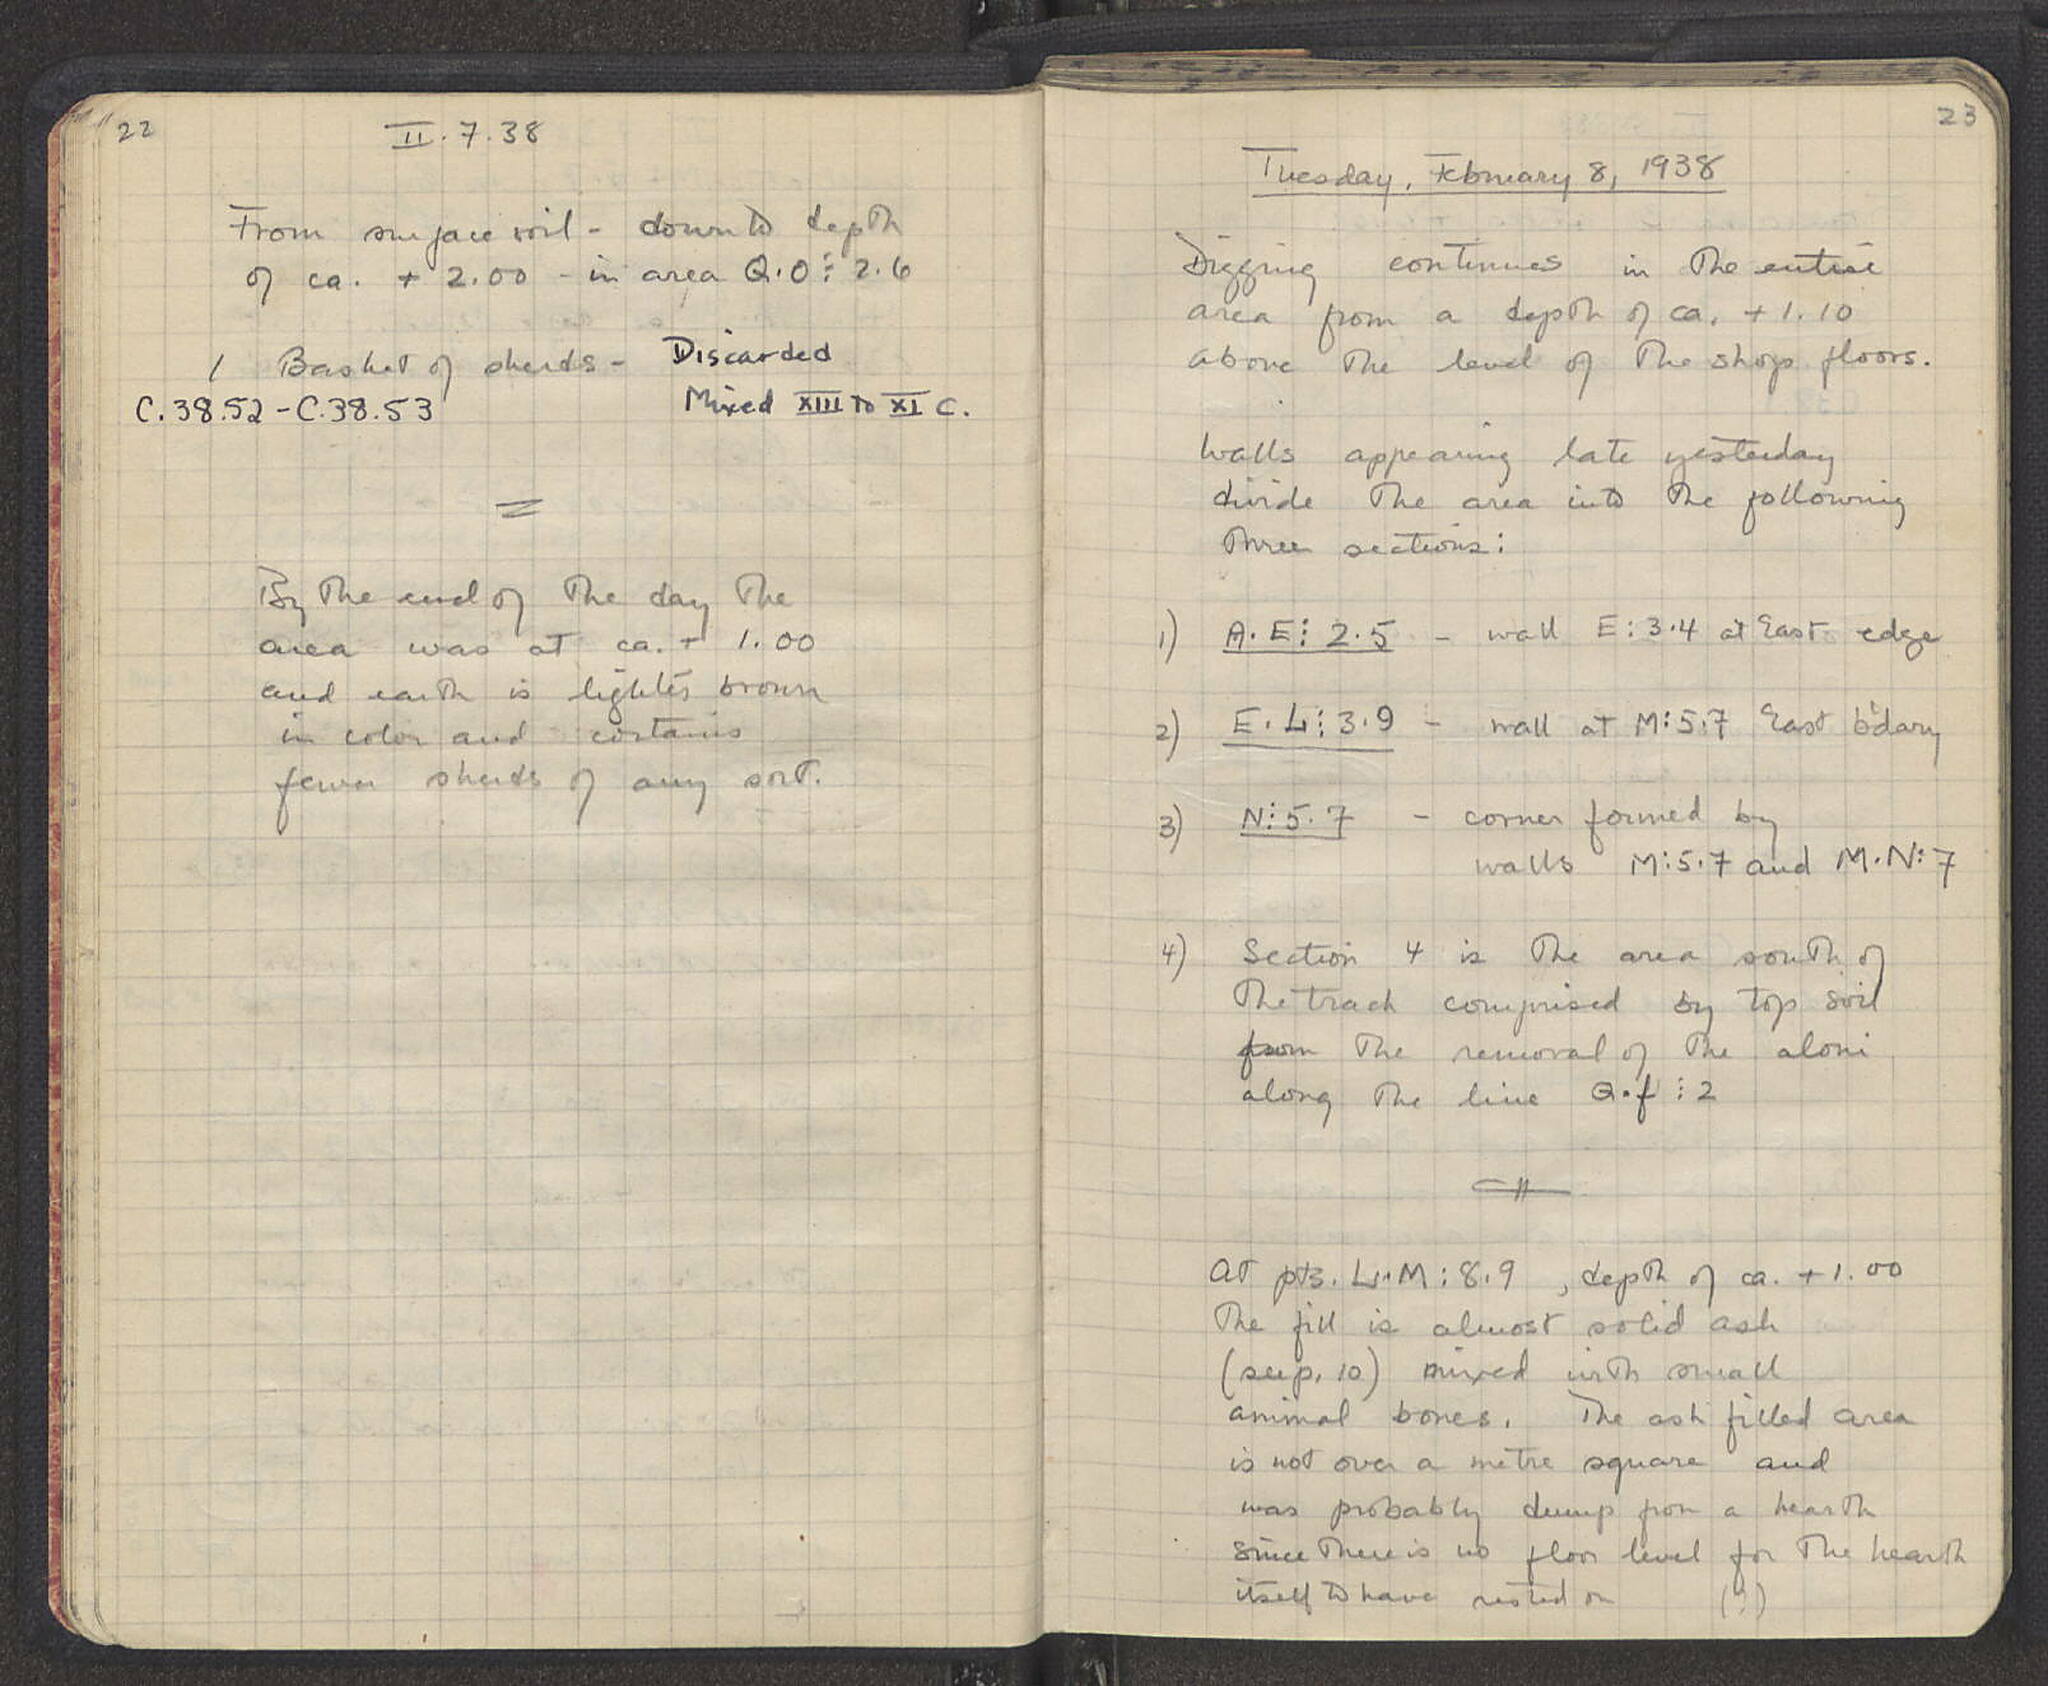 22
II.7.38
From surface soil - down to depth
of ca. + 2.00 - in area Q.O⋮2.6
1 Basket of sherds - Discarded
C.38.52-C.38.53 Mixed XIII to XI C.
By the end of the day the
area was at ca. + 1.00
and earth is lighter brown
in color and contains
fewer sherds of any sort.
23
Tuesday, February 8, 1938
Digging continues in the entire
area from a depth of ca. + 1.10
above the level of the shop floors.
Walls appearing late yesterday
divide the area into the following
three sections:
1) A.E⋮2.5 - wall E:3.4 at East edge
2) E.L⋮3.9 - wall at M:5.7 East b'dary
3) N⋮5.7 - corner formed by
walls M:5.7 and M.N:7
4) Section 4 is the area south of
the track comprised by top soil
from the removal of the aloni
along the line Q.f⋮2
At pts. L.M:8.9, depth of ca. +1.00
the fill is almost solid ash
(see p. 10) mixed with small
animal bones. The ash filled area
is not over a metre square and
was probably dump from a hearth
since there is no floor level for the hearth
itself to have rested on (?)